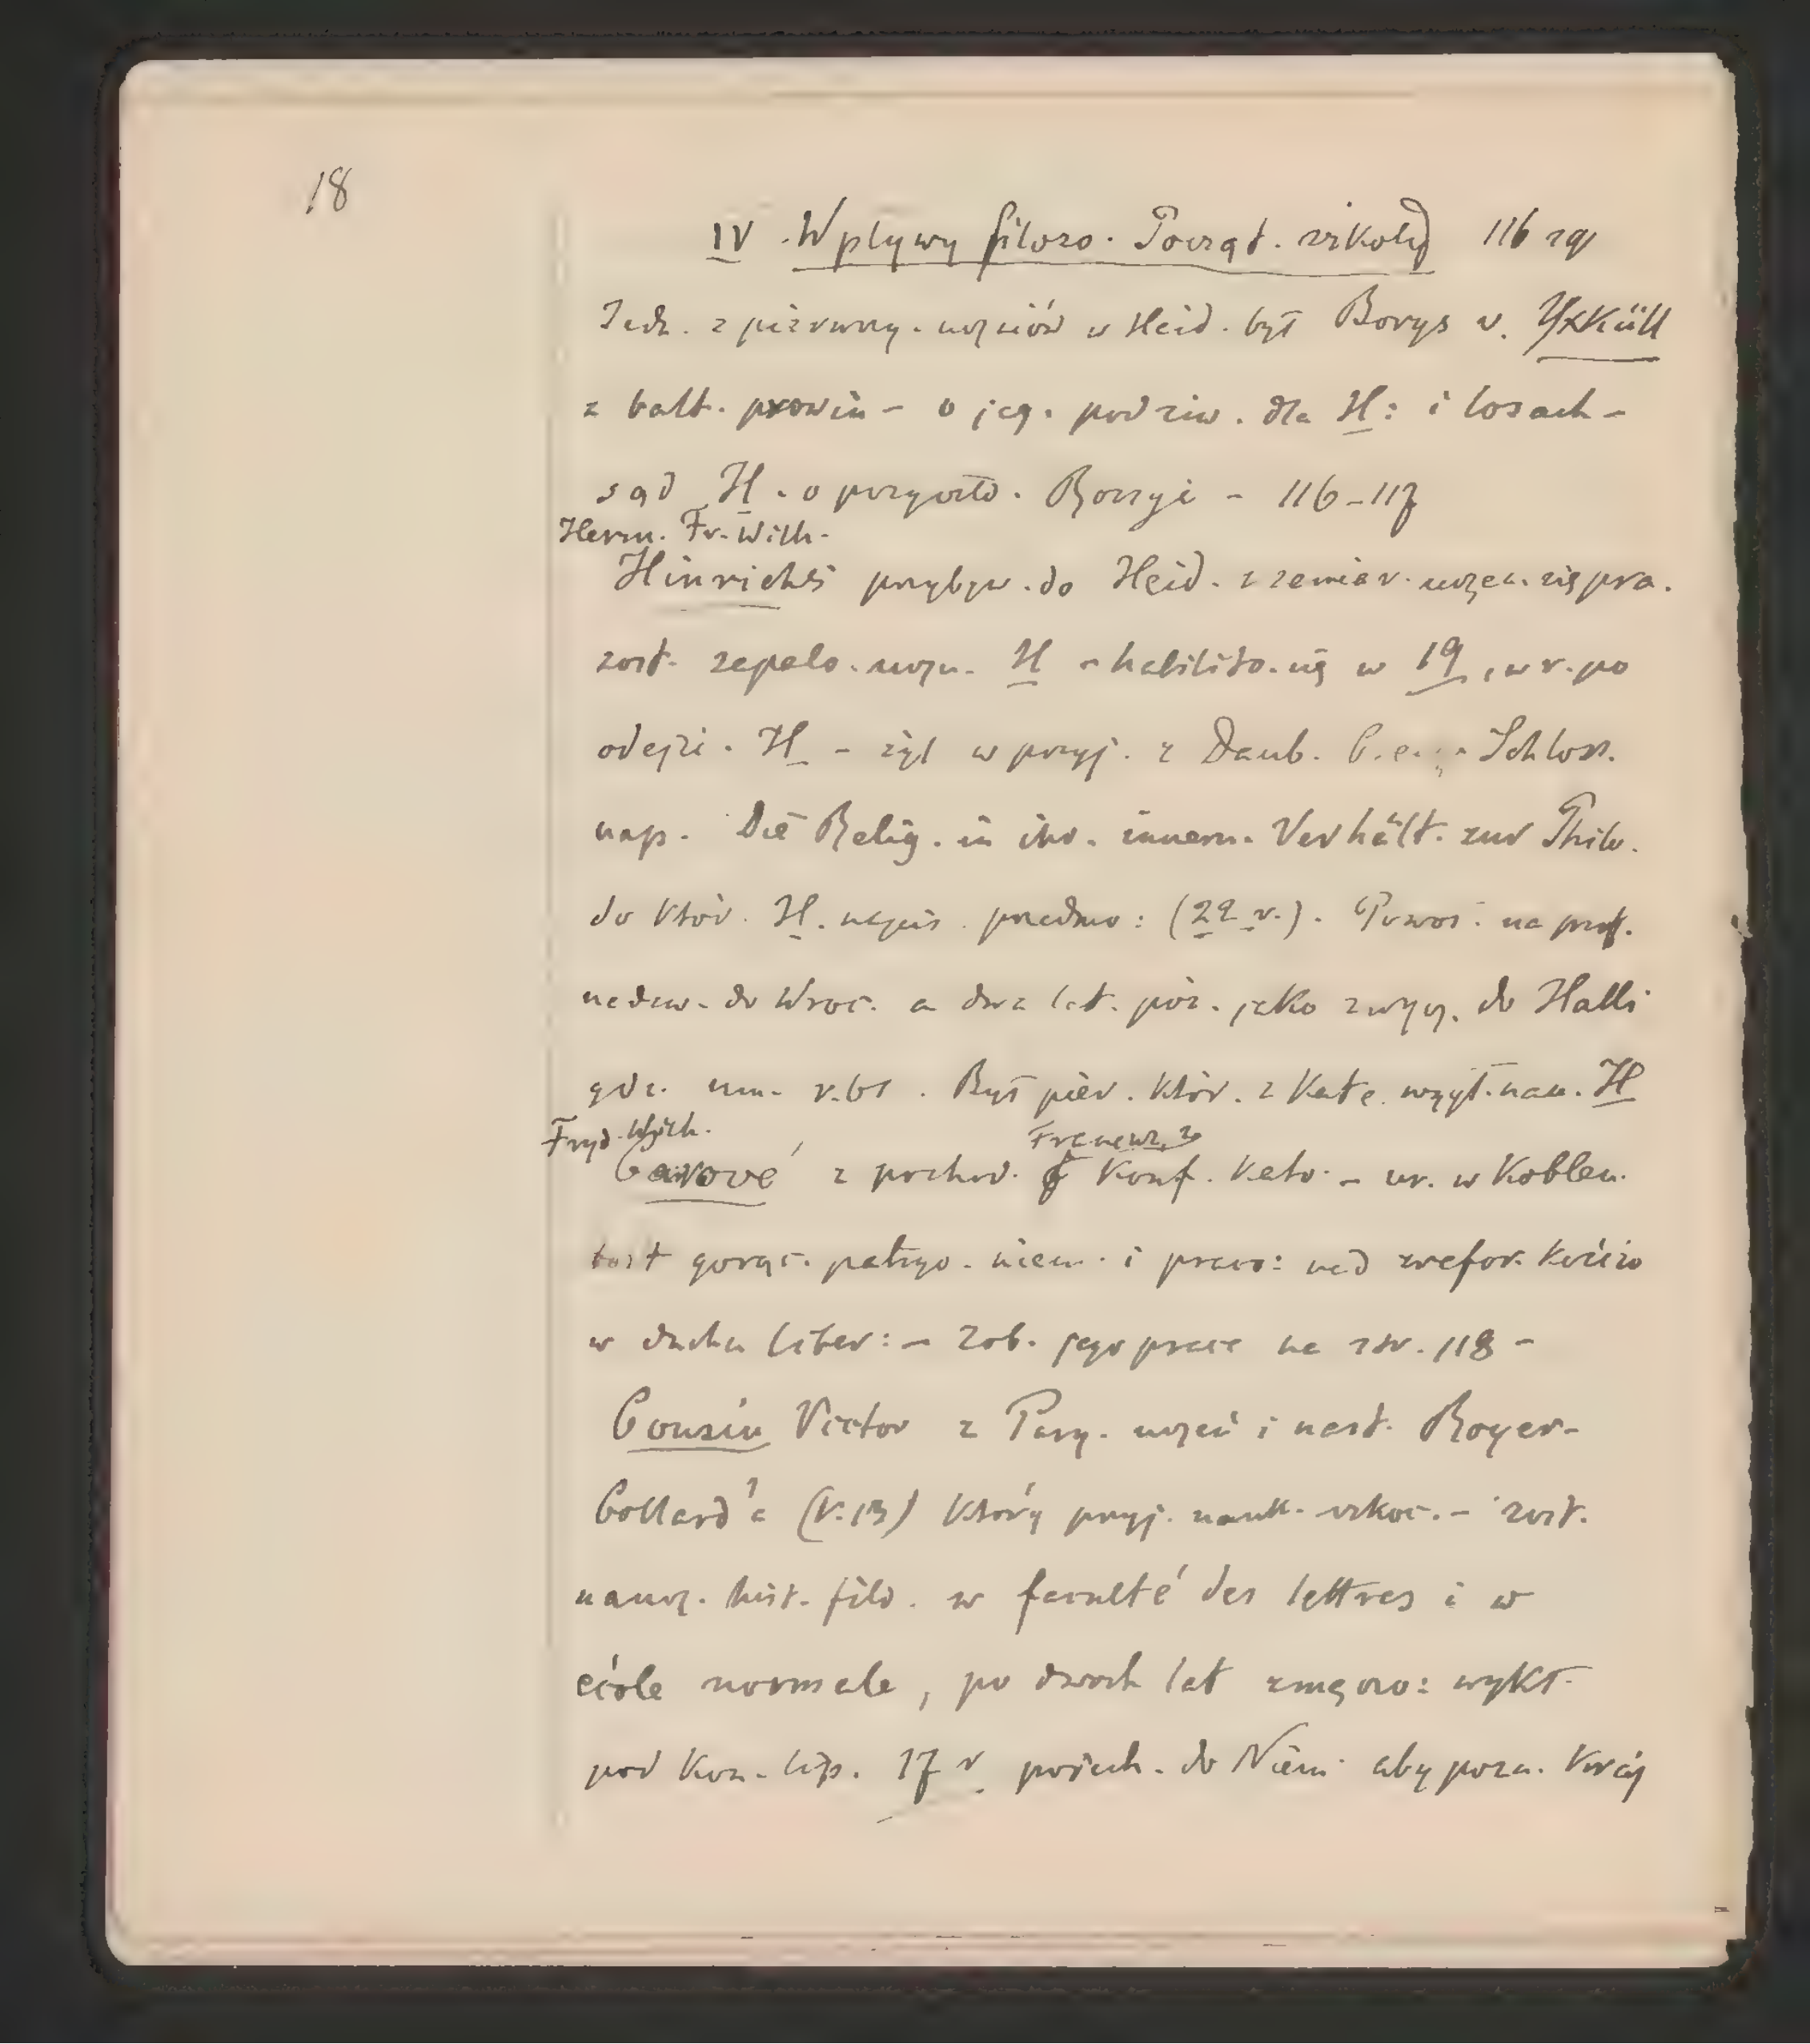 18
IV Wpływy filozo. Począt. szkoły 116 sq
Jedn. z pierwszy. uczniów w Heid. był Borys v. Yxküll
z balt. prowin - o jeg. podziw. dla H: i losach -
sąd H. o przyszło. Rossyi - 116-117
Herm. Fr. Wilh.
Hinrichs przybyw. do Heid. z zamiar. uczen. się pra.
zost. zapalo. uczn. H - habilito. się w 19, w r. po
odejś. H - żył w przyj. z Daub. Schloss.
nap. Die Relig. in ihr. innern. Verhält. zur Philo.
do któr. H. napis. przedmo: (22 r.). Powoł. na prof.
nadzw. do Wroc. a dwa lat. póź. jako zwycz. do Halli
gdz. um. r. 61. Był pier. któr. z kate. wykł. nau. H
Fryd. Wilh.
Carové z pochod. Francuz, z konf. kato. - ur. w Koblen.
był gorąc. patryo. niem. i praco: nad zrefor. kościo
w duchu liber: - Zob. jego prace na str. 118 -
Cousin Victor z Pary. uczeń i nast. Royer-
Collard'a (r. 13) który przyj. nauk. szkoc. - zost.
naucz. hist. filo. w faculté des lettres i w
école normale, po dwoch lat wykł.
pod kon. lip. 17 r. pojech. do Niem. aby pozn. kraj